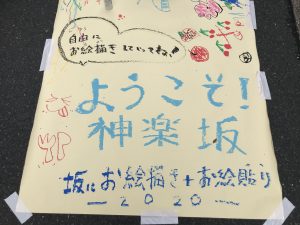 自由に
お絵描きしていってね！
ようこそ！
神楽坂
坂にお絵描き+お絵貼り
2020